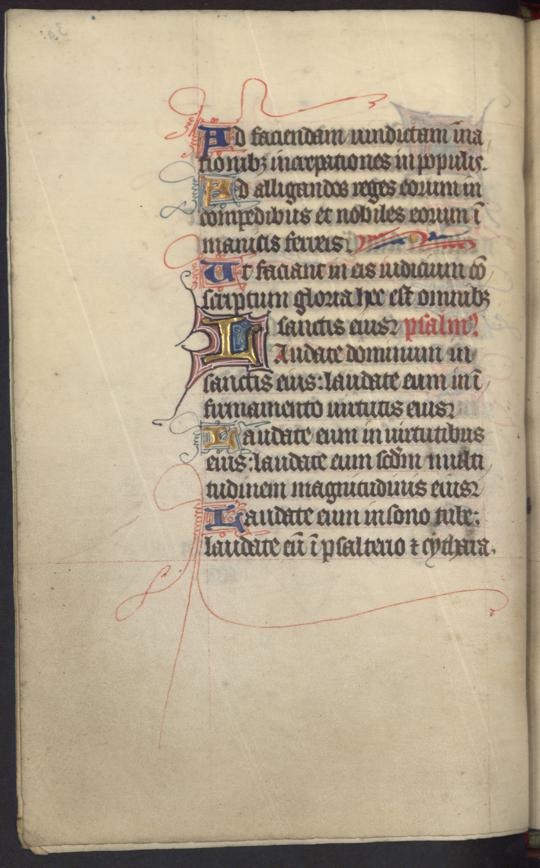 Ad faciendam uindictam in na
tionibꝫ increpationes in populis.
Ad alligandos reges eorum in
compedibus et nobiles eorum ī
manicis ferreis
Ut faciant in eis iudicium cō
scriptum gloria hec est omnibꝫ
sanctis eius psalmꝰ
Laudate dominum in
sanctis eius: laudate eum in ī
firmamento uirtutis eius
Laudate eum in uirtutibus
eius: laudate eum scdm̄ multi
tudinem magnitudinis eius
Laudate eum in sono tube:
laudate eū ī psalterio ⁊ cythara.